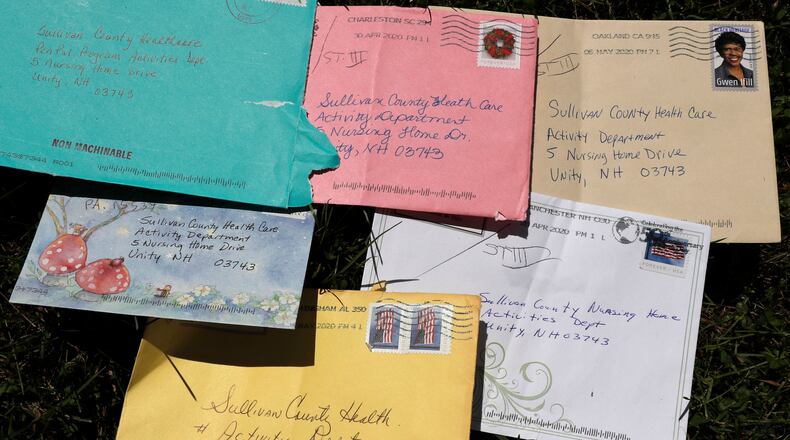 Sullivan County Healthcare
Pen Pal Program Activities Dept
5 Nursing Home Drive
Unity, NH
03743
NON MACHINABLE
R001
CHARLESTON SC 294
30 APR 2020 PM 1 L
FOREVER
ST. III
Sullivan County Heath Care
Activity Department
5 Nursing Home Dr.
Unity, NH 03743
OAKLAND CA 945
06 MAY 2020 PM 7 L
BLACK HERITAGE
Gwen Ifill
Sullivan County Health Care
Activity Department
5 Nursing Home Drive
Unity, NH 03743
PA.
Sullivan County Health Care
Activity Department
5 Nursing Home Drive
Unity NH
03743
ANCHESTER NH 030
APR 2020 PM 1 L
Celebrating the
FOREVER USA
ST III
Sullivan County Nursing Home
Activities Dept
Unity, NH 03743
AL 350
2020 PM 4 L
Sullivan County Health
# Activity